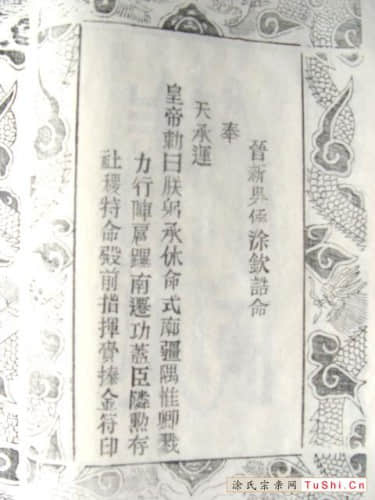 晉新興侯涂欽誥命
奉
天承運
皇帝勅曰朕躬承休命式廓疆隅惟卿戮
力行陣扈蹕南遷功蓋臣隣勲存
社稷特命殿前指揮賫捧金符印
涂氏宗亲网
TuShi.Cn